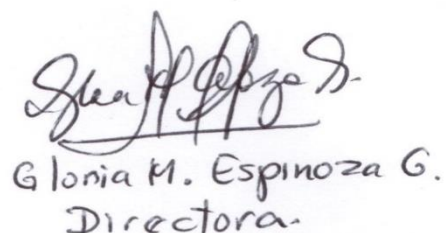 Gloria M. Espinoza G.
Directora.